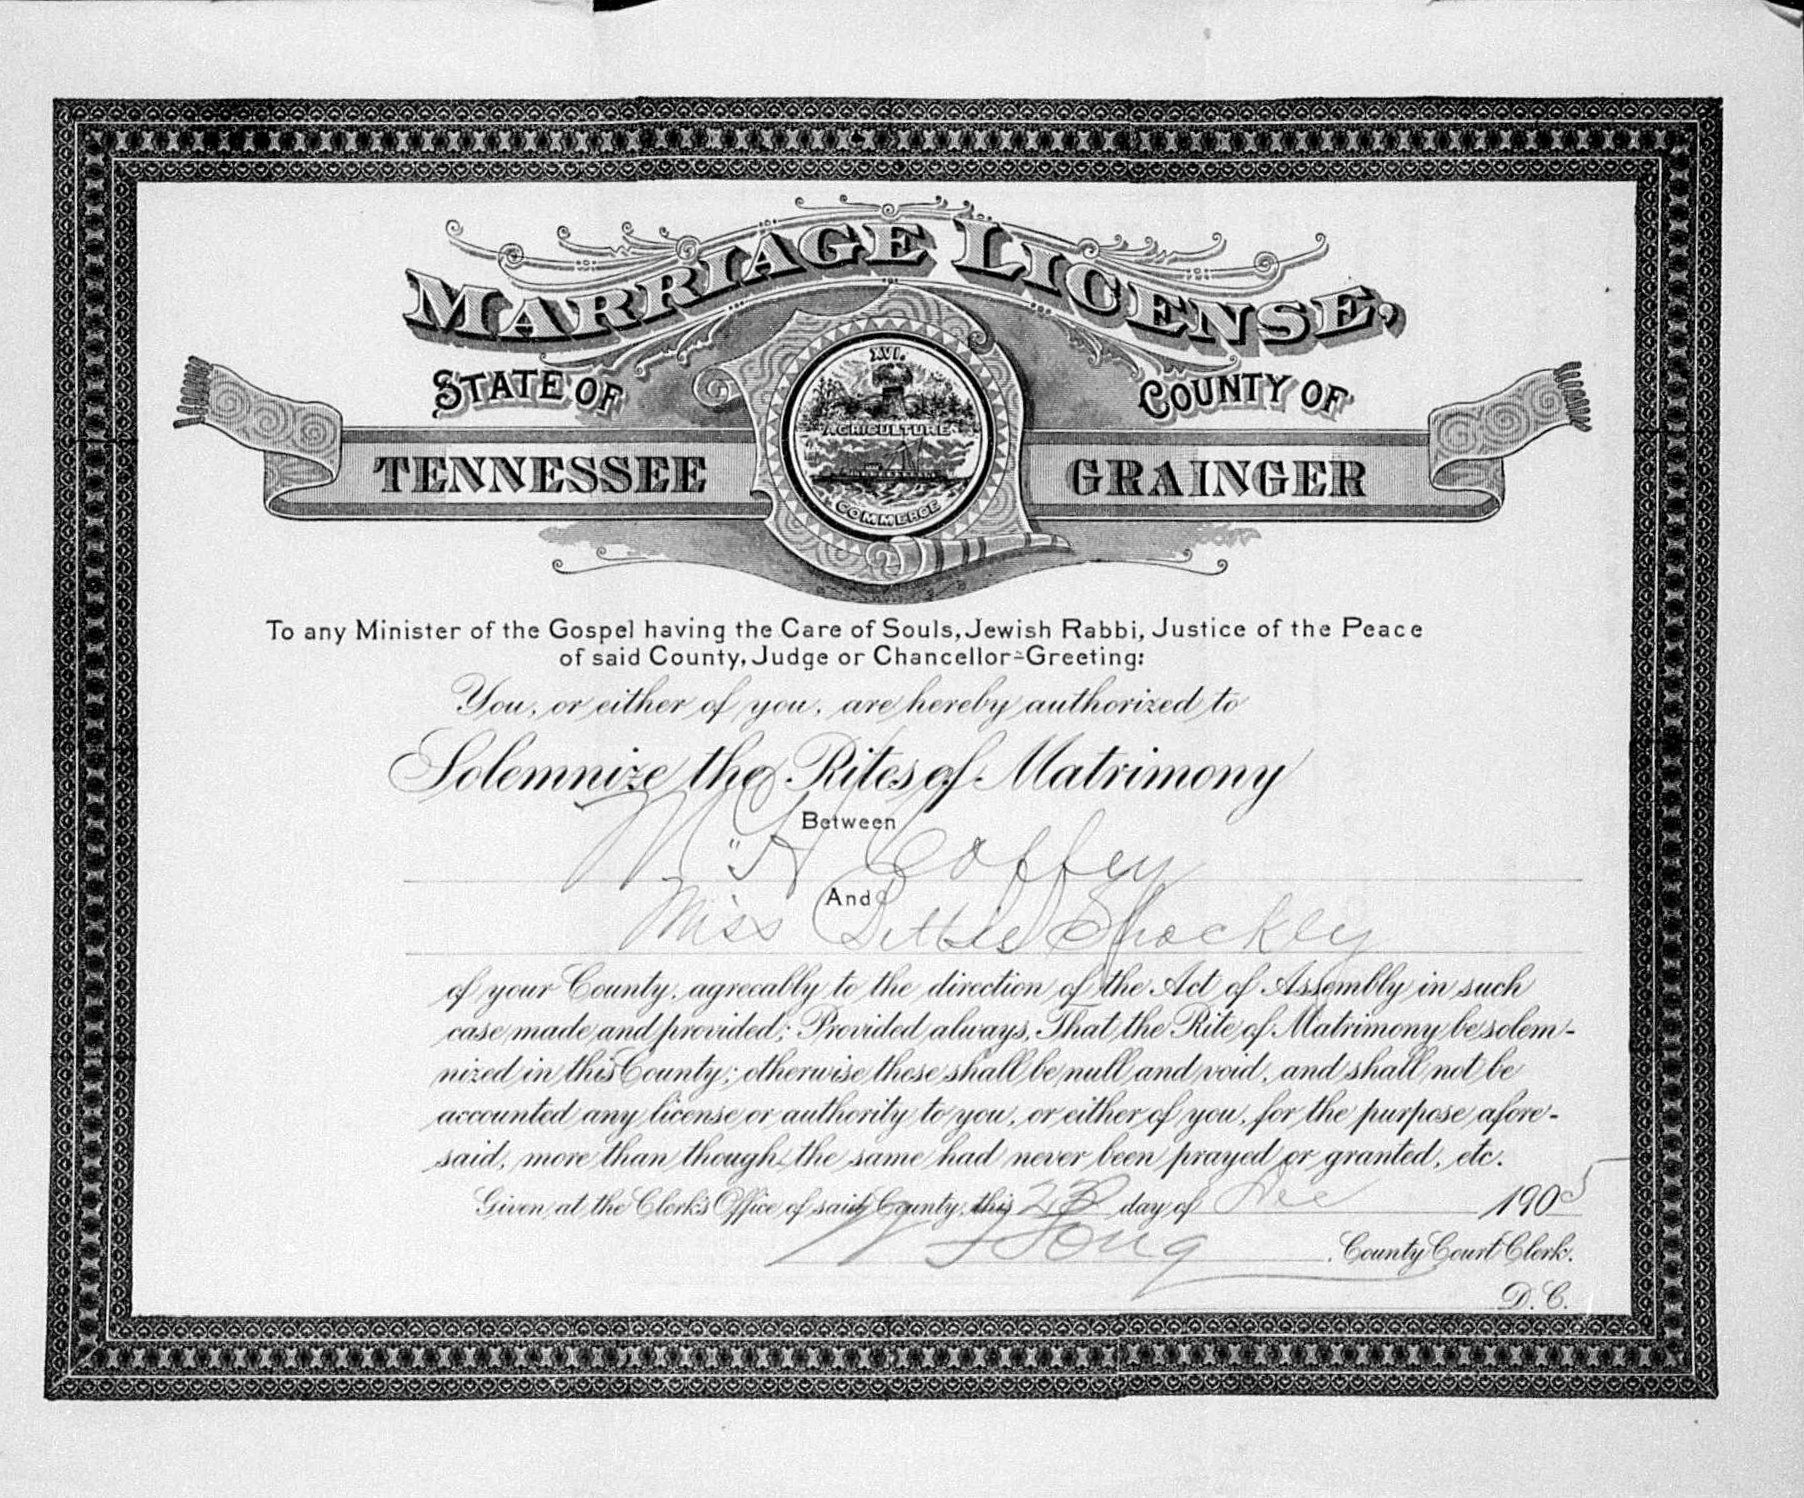 MARRIAGE LICENSE,
STATE OF
COUNTY OF
TENNESSEE
GRAINGER
XVI.
AGRICULTURE
COMMERCE
To any Minister of the Gospel having the Care of Souls, Jewish Rabbi, Justice of the Peace
of said County, Judge or Chancellor-Greeting:
You, or either of you, are hereby authorized to
Solemnize the Rites of Matrimony
Between
Coffey
And
Miss Shockley
of your County, agreeably to the direction of the Act of Assembly in such
case made and provided; Provided always, That the Rite of Matrimony be solem-
nized in this County; otherwise these shall be null and void, and shall not be
accounted any license or authority to you, or either of you, for the purpose afore-
said, more than though the same had never been prayed or granted, etc.
Given at the Clerk's Office of said County, this 23 day of Dec 1905
County Court Clerk.
D. C.